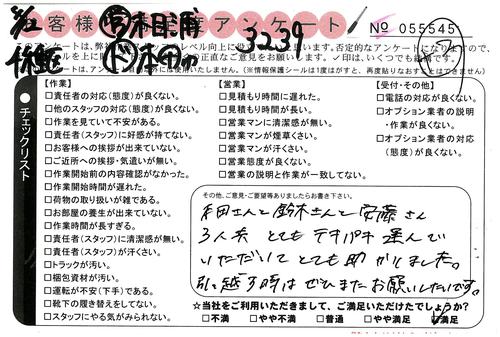 お客様満足度アンケート
No 055545
3239
チェックリスト
【作業】
□責任者の対応(態度)が良くない。
□他のスタッフの対応(態度)が良くない。
□作業を見ていて不安がある。
□責任者(スタッフ)に好感が持てない。
□お客様への挨拶が出来ていない。
□ご近所への挨拶・気遣いが無い。
□作業開始前の内容確認がなかった。
□作業開始時間が遅れた。
□荷物の取り扱いが雑である。
□お部屋の養生が出来ていない。
□作業時間が長すぎる。
□責任者(スタッフ)に清潔感が無い。
□責任者(スタッフ)が汗くさい。
□トラックが汚い。
□梱包資材が汚い。
□運転が不安(下手)である。
□靴下の履き替えをしてない。
□スタッフにやる気がみられない。
【営業】
□見積もり時間に遅れた。
□見積もり時間が長い。
□営業マンに清潔感が無い。
□営業マンが煙草くさい。
□営業マンが汗くさい。
□営業態度が良くない。
□営業の説明と作業が一致してない。
【受付・その他】
□電話の対応が良くない。
□オプション業者の説明
・作業が良くない。
□オプション業者の対応
(態度)が良くない。
その他、ご意見・ご要望等ありましたらお書き下さい。
本田さんと鈴木さんと安藤さん
3人共 とても テキパキ 運んで
いただいて とても 助かりました。
引っ越す時は ぜひまた お願いしたいです。
☆当社をご利用いただきまして、ご満足いただけたでしょうか?
□不満 □やや不満 □普通 □やや満足 □満足